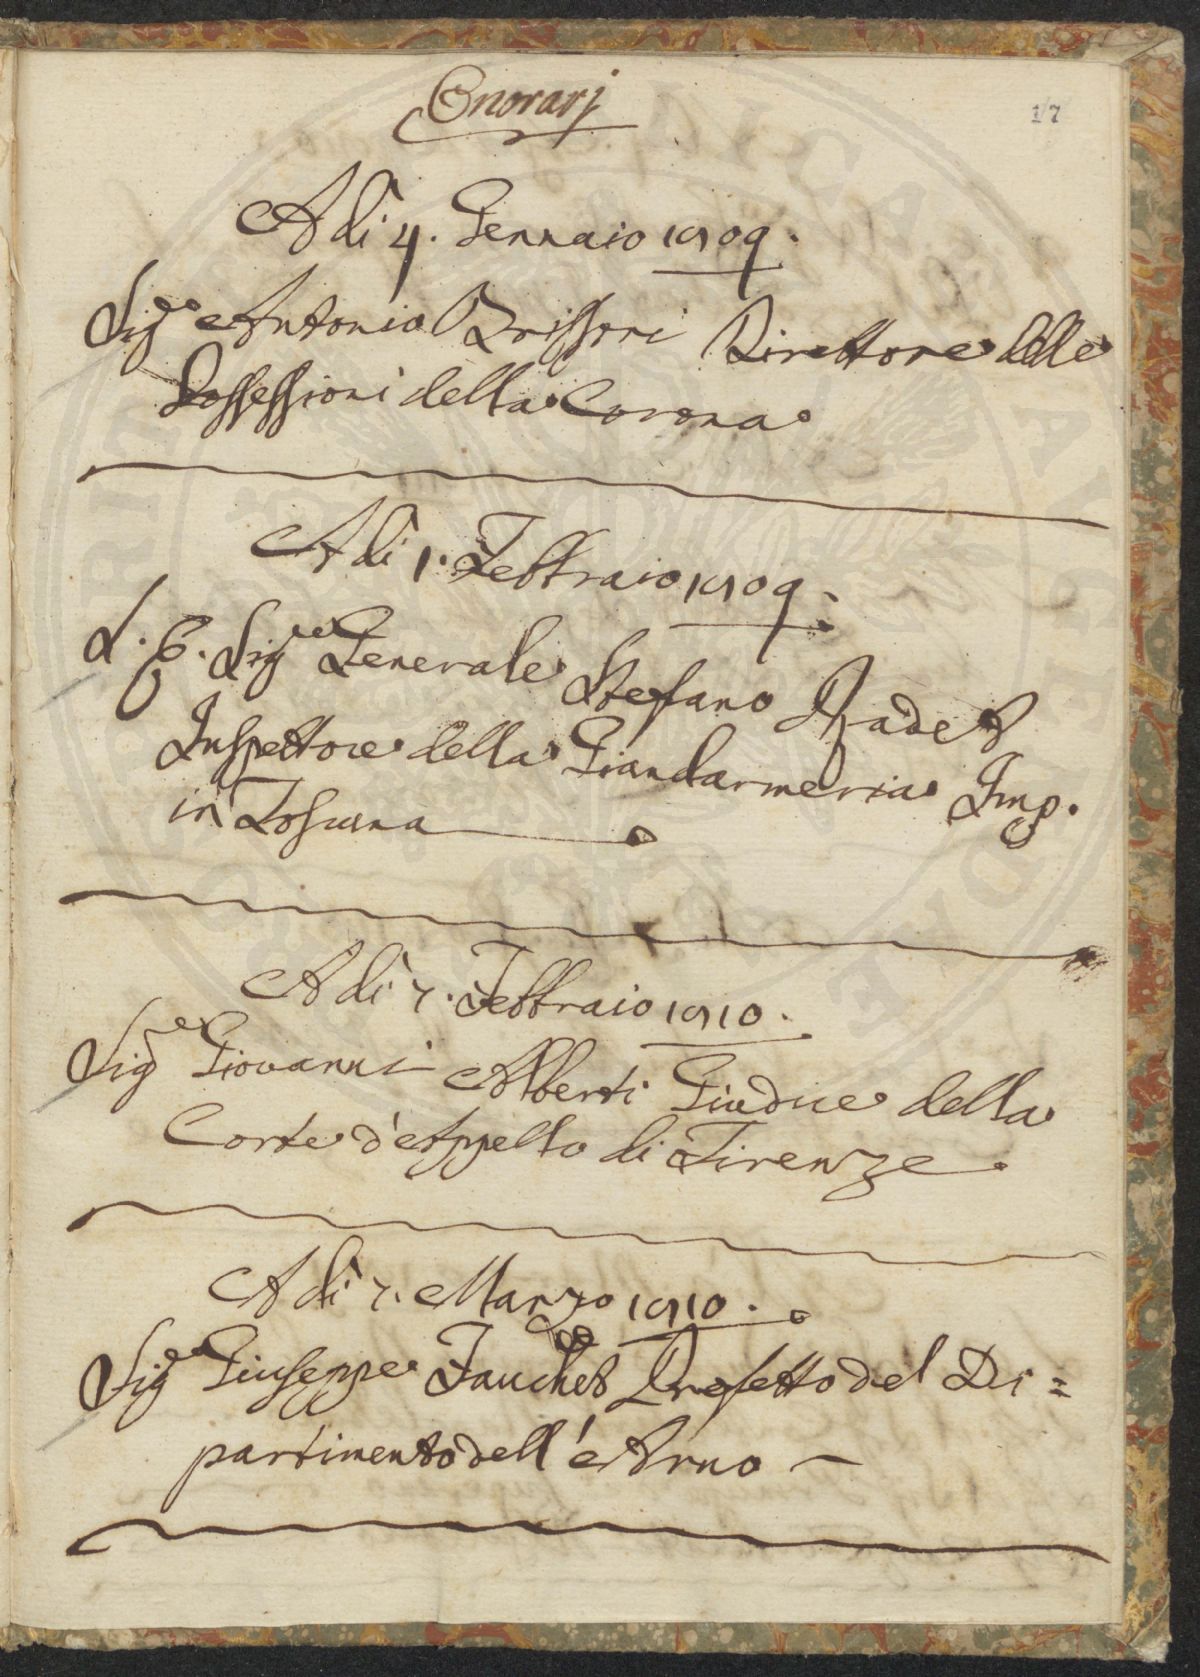 Onorarj
17
Adi 4. Gennaio 1809.
Sig.e Antonio Brissoni Direttore delle
Possessioni della Corona
Adi 1. Febbraio 1809.
S. E. Sig.re Generale Stefano Radet
Inspettore della Giandarmeria Imp.
in Toscana
Adi 7. Febbraio 1810.
Sig.e Giovanni Alberti Giudice della
Corte d'Appello di Firenze.
Adi 7. Marzo 1810.
Sig.e Giuseppe Fauchet Prefetto del Di=
partimento dell'Arno